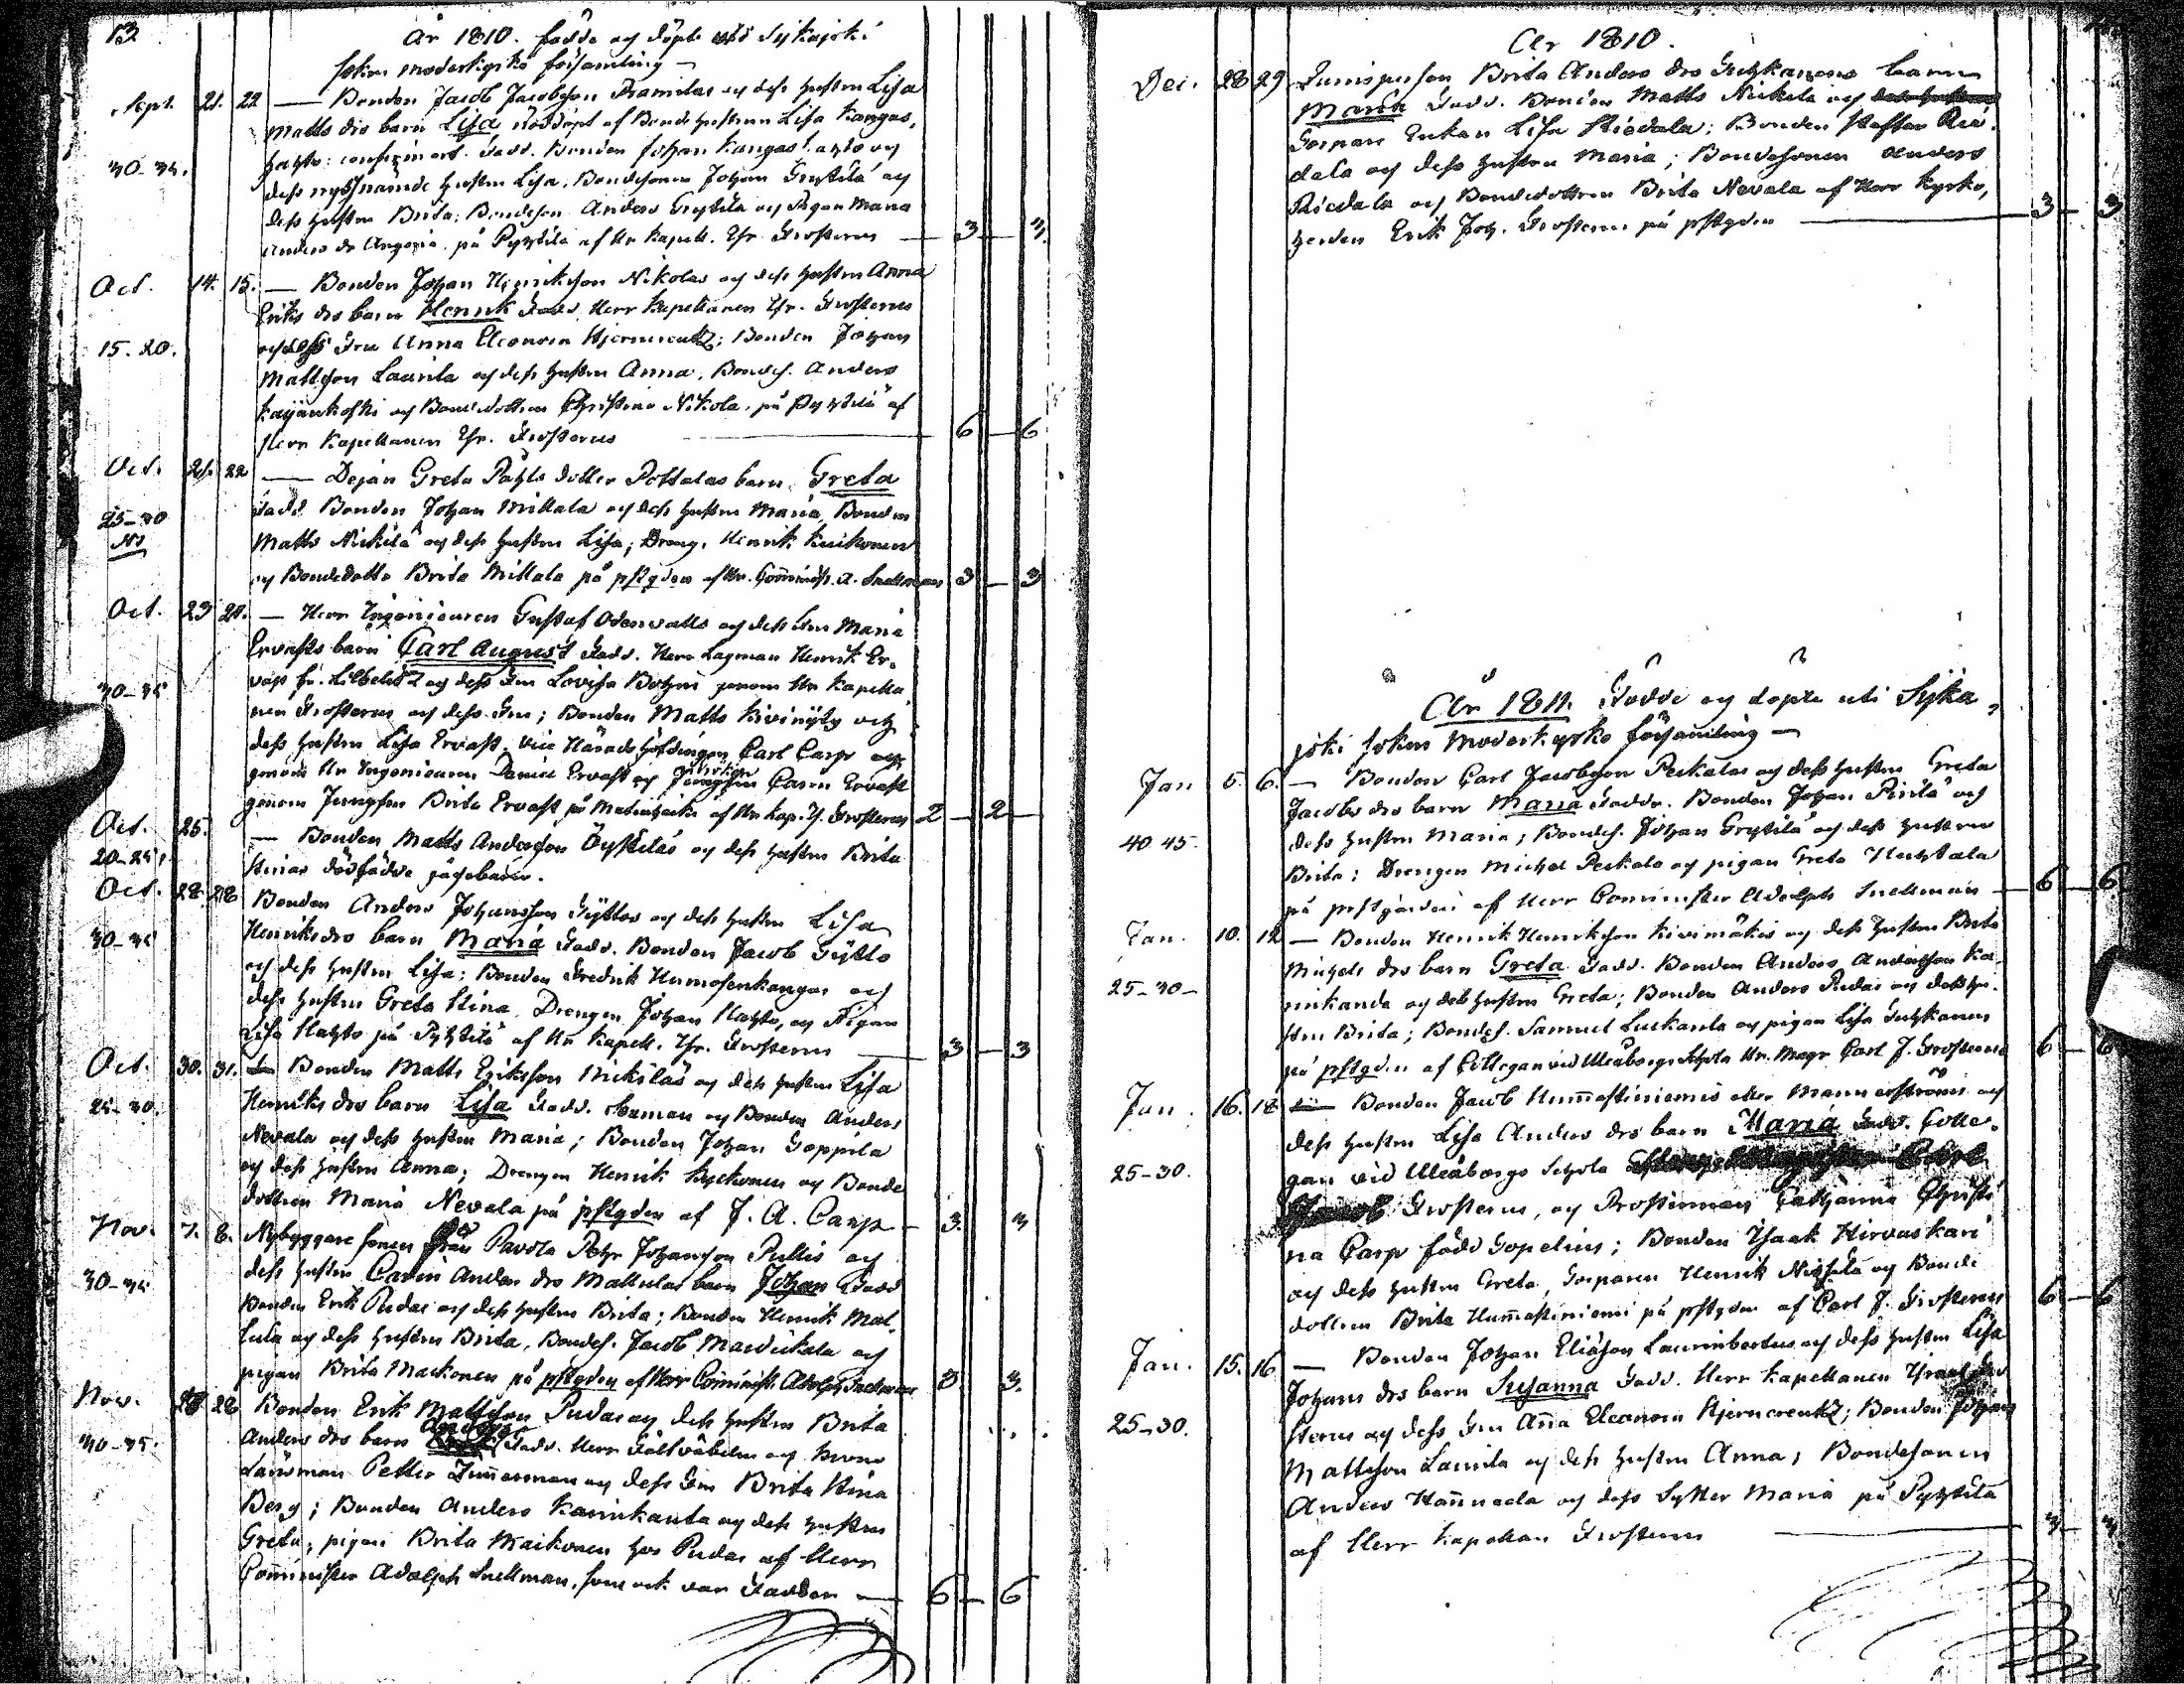 13.
År 1810. födde och döpte uti Sijkajoki
sokns moderkyrko församling —
Sept. 21. 22 — Bonden Jacob Jacobsson Framilas och dess hustru Lisa
Matts drs barn Lisa nöddöpt af Bonde hustrun Lisa Kangas,
30-35. confirmert. Fadd. Bonden Johan Kangas och
dess nyssnämde hustru Lisa, Bondesonen Johan Grytilä och
dess hustru Brita; Bondeson Anders Grytila och Pigan Maria
Anders dr på Pyhtilä af Hr Kapell. Isr. Frosterus — 3 — 3.
Oct. 14. 15. — Bonden Johan Henriksson Nikolas och dess hustru Anna
Eriks drs barn Henrik Fadd. Herr Kapellanen Isr. Frosterus
15. 20. och dess Fru Anna Eleonora Hjerncreutz; Bonden Johan
Mattsson Laurila och dess hustru Anna, Bondes. Anders
och Bondedottren Christina Nikola, på Pyhtilä af
Herr Kapellanen Isr. Frosterus 6 — 6
Oct. 21. 22 — Dejan Greta Påhls dotter Pottalas barn Greta
25-30 Fadd. Bonden Johan Mittala och dess hustru Maria, Bonden
Matts Nickilä och dess hustru Lisa; Dreng. Henrik
och Bondedottr Brita Mittala på pstgden af Hr. Comminist. A. Snellman 3 — 3
Oct. 23 24. — Herr Ingenieuren Gustaf Odenvalls och dess Fru Maria
Ervasts barn Carl August Fadd. Herr Lagman Henrik Er-
30-35 vast och dess Fru Lovisa genom Hr Kapella
nen Frosterus och dess Fru; Bonden Matts Kivinijty och
dess hustru Lisa Ervast. Vice Häradshöfdingen Carl Carp och
genom Hr Ingenieuren Daniel Ervast och Carin Ervast
genom Jungfru Brita Ervast på af Hr Kap. I. Frosterus 2 — 2 —
Oct. 25. — Bonden Matts Andersson Öystiläs och dess hustru Brita
20-25. Stinas dödfödde gåssebarn.
Oct. 28. 28 Bonden Anders Johansson Tyttos och dess hustru Lisa
30-35 Henriks drs barn Maria Fadd. Bonden Jacob Tytto
och dess hustru Lisa; Bonden Fredrik Hurnosenkangas och
dess hustru Greta Stina, Drengen Johan Hahto, och Pigan
Lisa Hahto på Pyhtilä af Hr Kapell. Isr. Frosterus — 3 — 3
Oct. 30. 31. — Bonden Matts Eriksson Nickiläs och dess hustru Lisa
25-30. Henriks drs barn Lisa Fadd. och Bonden Anders
Nevala och dess hustru Maria; Bonden Johan Goppila
och dess hustru Anna; Drengen Henrik och Bonde
dottren Maria Nevala på pstgden af J. A. Carp — 3. 3
Nov. 7. 8. Nybyggare sonen från Pavola Pehr Johansson Pullis och
30-35 dess hustru Carin Anders drs Mattulas barn Johan Fadd
Bonden Erik Pudas och dess hustru Brita; Bonden Henrik Mat-
tula och dess hustru Brita, Bondes. Jacob och
pigan Brita på pstgden af Herr Comminist. Adolph Snellman 3 3.
Nov. 28 Bonden Erik Mattsson Pudas och dess hustru Brita
30-35. Anders drs barn Anders Fadd. Herr Fältväbeln och
Länsman Petter Zimmerman och dess Fru Brita Stina
Berg; Bonden Anders Karinkanta och dess hustru
Greta; pigan Brita hos Pudas af Herr
Comminister Adolph Snellman, som ock var Fadder — 6 — 6
År 1810.
Dec. 28 29 Brita Anders drs barn
Maria Fadd. Bonden Matts Nickilä och
Enkan Lisa Riedala; Bonden Staffan Rie-
dala och dess hustru Maria; Bondesonen Anders
Riedala och Bondedottren Brita Nevala af Herr Kyrko,
herden Erik Joh. Frosterus på pstgden — 3 — 3
År 1811. Födde och döpte uti Sijka,
joki sokns Moderkyrko församling —
Jan 5. 6. — Bonden Carl Jacobsson Peckalas och dess hustru Greta
Jacobs drs barn Maria Faddr. Bonden Johan Pirilä och
40 45. dess hustru Maria; Bondes. Johan Grytilä och dess hustru
Brita; Drengen Michel Peckala och pigan Greta
på prestgården af Herr Comminister Adolph Snellman — 6 — 6
Jan. 10. 12 — Bonden Henrik Henriksson Kivimäkis och dess hustru Brita
Michels drs barn Greta Fadd. Bonden Anders Andersson Ka-
25-30- rinkanda och dess hustru Greta; Bonden Anders Pudas och dess hu-
stru Brita; Bondes. Samuel Luckarla och pigan Lisa
på pstgden af Collegan vid Uleåborgs Schola Hr. Magr Carl J. Frosterus 6 — 6
Jan. 16. 18 — Bonden Jacob Hummastiniemis eller och
dess hustru Lisa Anders drs barn Maria Fadd. Colle-
25-30. gan vid Uleåborgs Schola
Frosterus, och Prostinnan Catharina Christi
na Carp född Gopelius; Bonden Isaak Hirvaskari
och dess hustru Greta, Henrik och Bonde
dottren Brita Hummastiniemi på pstgden af Carl J. Frosterus 6 — 6
Jan. 15. 16 — Bonden Johan Eliasson och dess hustru Lisa
Johans drs barn Susanna Fadd. Herr Kapellanen Israel Fro
25-30. sterus och dess Fru Anna Eleonora Hjerncreutz; Bonden Johan
Mattsson Laurila och dess hustru Anna; Bondesonen
Anders Hannuela och dess Syster Maria på Pyhtilä
af Herr Kapellan Frosterus — 3 — 3